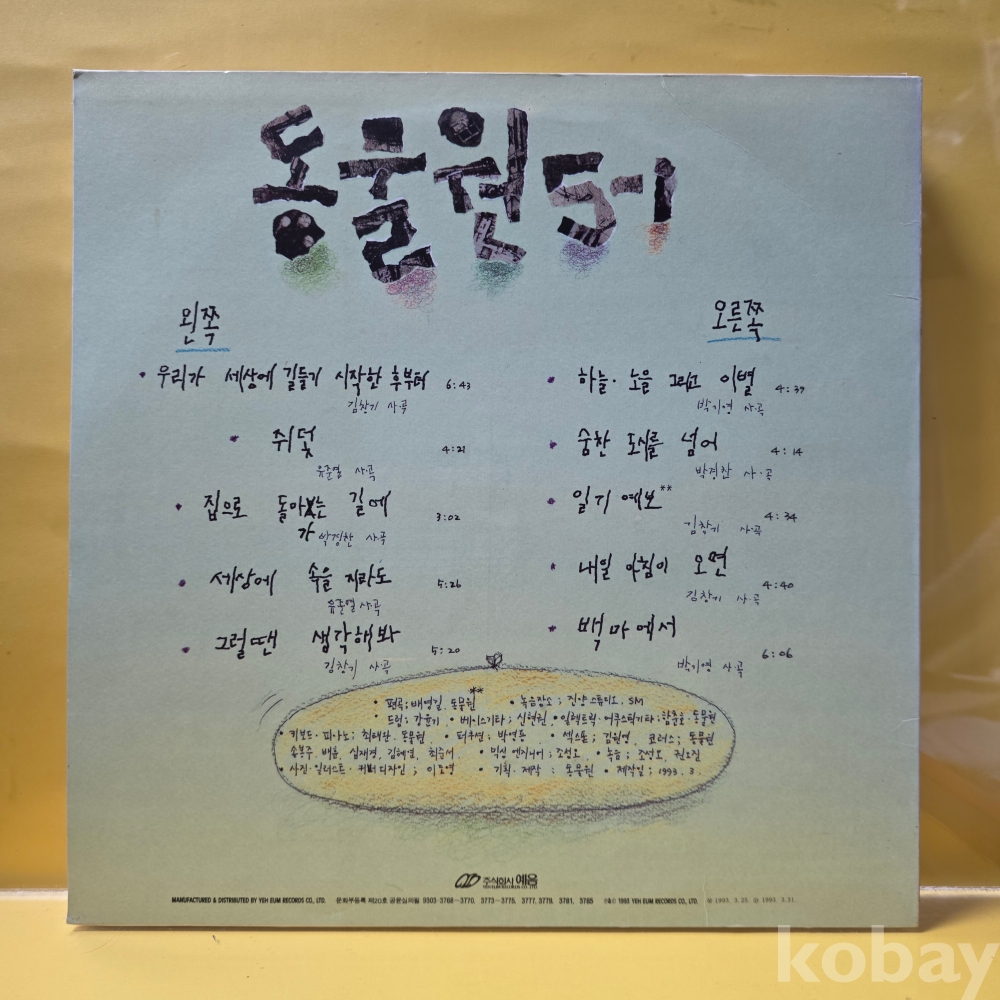 동물원 5-1
왼쪽
• 우리가 세상에 길들기 시작한 후부터 6:43
김창기 사·곡
• 쥐덫 4:21
유준열 사·곡
• 집으로 돌아가는 길에 3:02
박경찬 사·곡
• 세상에 속을 지라도 5:26
유준열 사·곡
• 그럴땐 생각해봐 5:20
김창기 사·곡
오른쪽
• 하늘·노을 그리고 이별 4:39
박기영 사·곡
• 숨찬 도시를 넘어 4:14
박경찬 사·곡
• 일기 예보** 4:34
김창기 사·곡
• 내일 아침이 오면 4:40
김창기 사·곡
• 백마에서 6:06
박기영 사·곡
• 편곡; 배영길, 동물원** • 녹음장소; 진양 스튜디오, SM
• 드럼; 강윤기 • 베이스기타; 신현권 • 일렉트릭·어쿠스틱기타; 함춘호·동물원
• 키보드·피아노; 최태완·동물원 • 퍼커션; 박영용 • 섹스폰; 김원영, 코러스; 동물원
송봉주, 배훈, 심재경, 김혜연, 최승서 • 믹싱 엔지니어; 조성오, • 녹음; 조성오,
• 사진·일러스트·커버디자인; 이도영 • 기획·제작; 동물원 • 제작일; 1993. 3.
주식회사 예음
YEH EUM RECORDS CO., LTD.
MANUFACTURED & DISTRIBUTED BY YEH EUM RECORDS CO., LTD. 문화부등록 제20호 공윤심의필 9303-3768―3770. 3773―3775. 3777. 3779. 3781. 3785 ℗&© 1993 YEH EUM RECORDS CO., LTD. 1993. 3. 25. 1993. 3. 31.
kobay